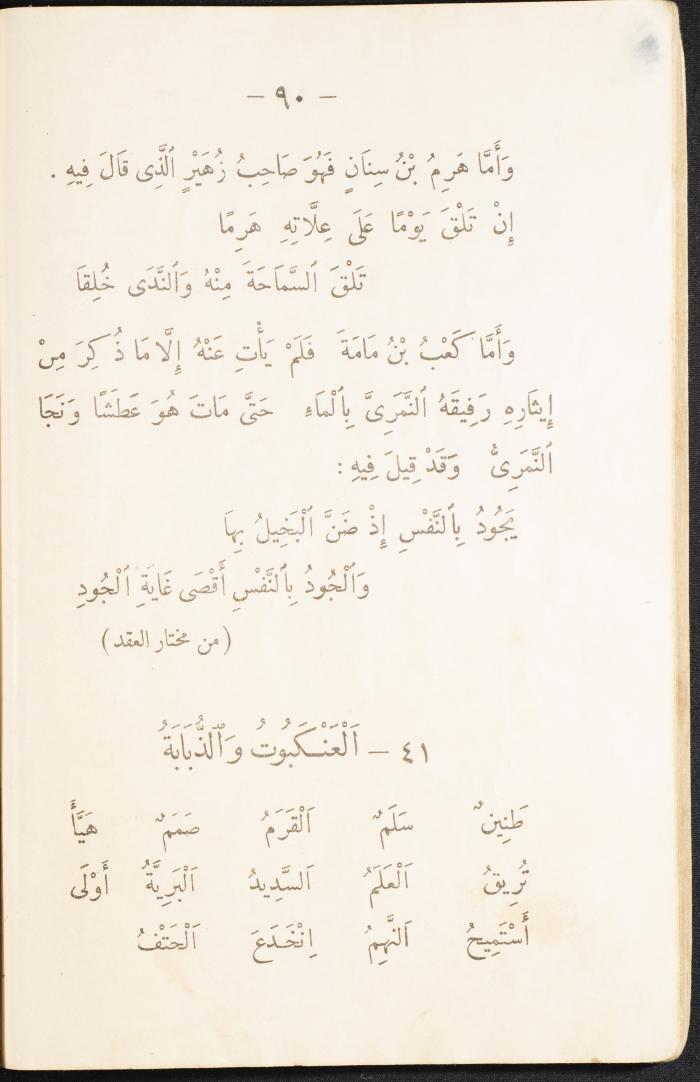 — ٩٠ —
وَأَمَّا هَرِمُ بْنُ سِنَانٍ فَهُوَ صَاحِبُ زُهَيْرٍ ٱلَّذِى قَالَ فِيهِ .
إِنْ تَلْقَ يَوْمًا عَلَى عِلَّاتِهِ هَرِمًا
تَلْقَ ٱلسَّمَاحَةَ مِنْهُ وَٱلنَّدَى خُلِقَا
وَأَمَّا كَعْبُ بْنُ مَامَةَ فَلَمْ يَأْتِ عَنْهُ إِلَّا مَا ذُكِرَ مِنْ
إِيثَارِهِ رَفِيقَهُ ٱلنَّمَرِىَّ بِٱلْمَاءِ حَتَّى مَاتَ هُوَ عَطَشًا وَنَجَا
ٱلنَّمَرِىُّ وَقَدْ قِيلَ فِيهِ :
يَجُودُ بِٱلنَّفْسِ إِذْ ضَنَّ ٱلْبَخِيلُ بِهَا
وَٱلْجُودُ بِٱلنَّفْسِ أَقْصَى غَايَةِ ٱلْجُودِ
(من مختار العقد)
٤١ — اَلْعَنْكَبُوتُ وَٱلذُّبَابَةُ
طَنِينٌ سَلَمٌ اَلْقَرَمُ صَمَمٌ هَيَّأَ
تُرِيقُ اَلْعَلَمُ اَلسَّدِيدُ اَلْبَرِيَّةُ أَوْلَى
أَسْتَمِيحُ اَلنَّهِمُ اِنْخَدَعَ اَلْحَتْفُ